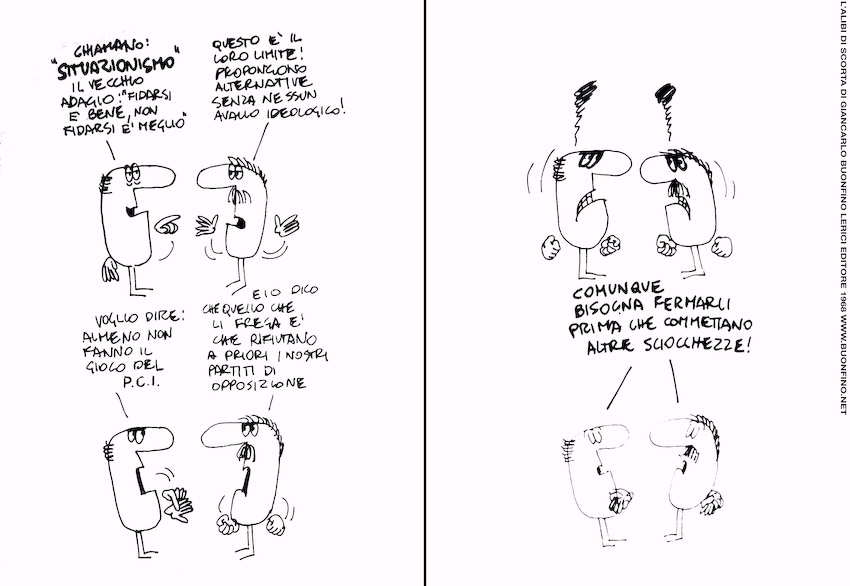 CHIAMANO:
"SITUAZIONISMO"
IL VECCHIO
ADAGIO: "FIDARSI
E' BENE, NON
FIDARSI E' MEGLIO"
QUESTO E' IL
LORO LIMITE!
PROPONGONO
ALTERNATIVE
SENZA NESSUN
AVALLO IDEOLOGICO!
VOGLIO DIRE:
ALMENO NON
FANNO IL
GIOCO DEL
P.C.I.
E IO DICO
CHE QUELLO CHE
LI FREGA E'
CHE RIFIUTANO
A PRIORI I NOSTRI
PARTITI DI
OPPOSIZIONE
COMUNQUE
BISOGNA FERMARLI
PRIMA CHE COMMETTANO
ALTRE SCIOCCHEZZE!
L'ALIBI DI SCORTA DI GIANCARLO BUONFINO LERICI EDITORE 1968 WWW.BUONFINO.NET